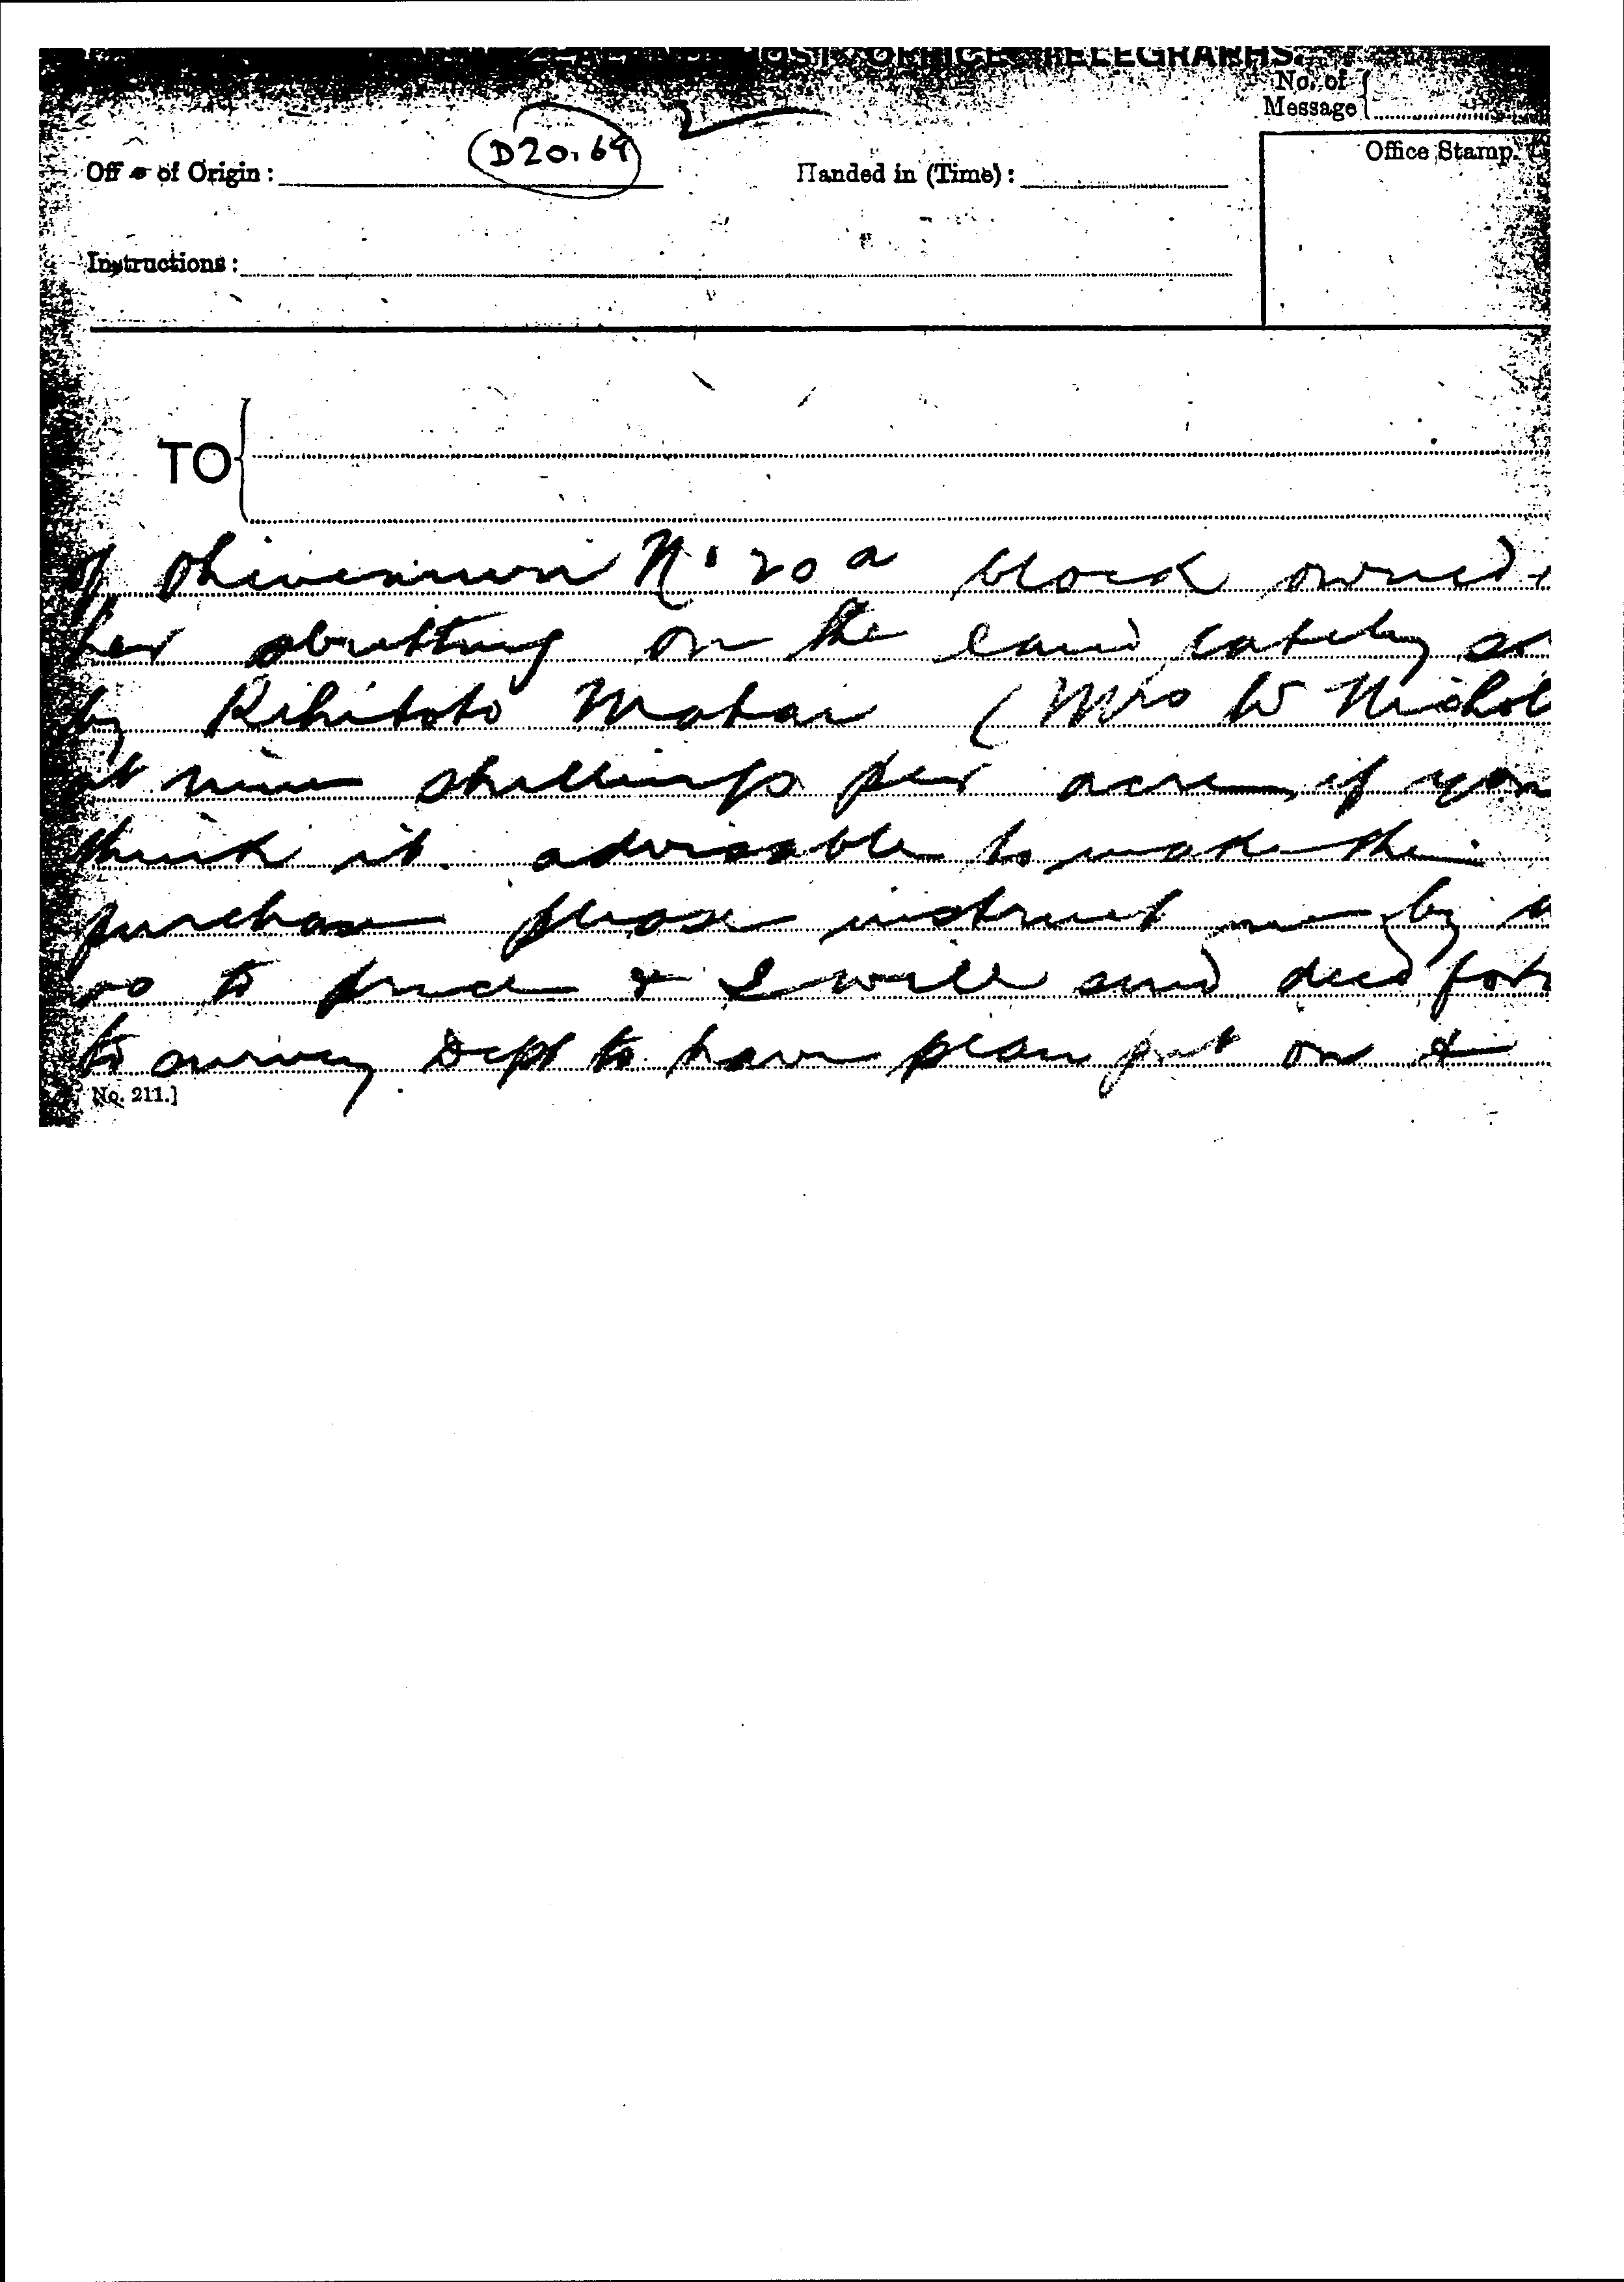 POST OFFICE TELEGRAPHS.
No. of
Message
D20.69
of Origin :
Handed in (Time) :
Office Stamp.
Instructions :
TO
of Ohinemuri No 20 a block owned
her abutting on the land lately
by Rihitoto Mataia (Mrs W Nichol
at nine shillings per acre, if you
think it advisable to make the
purchase please instruct me by
as to price & I will send deed
to survey Dept to have plan put on &
No. 211.]